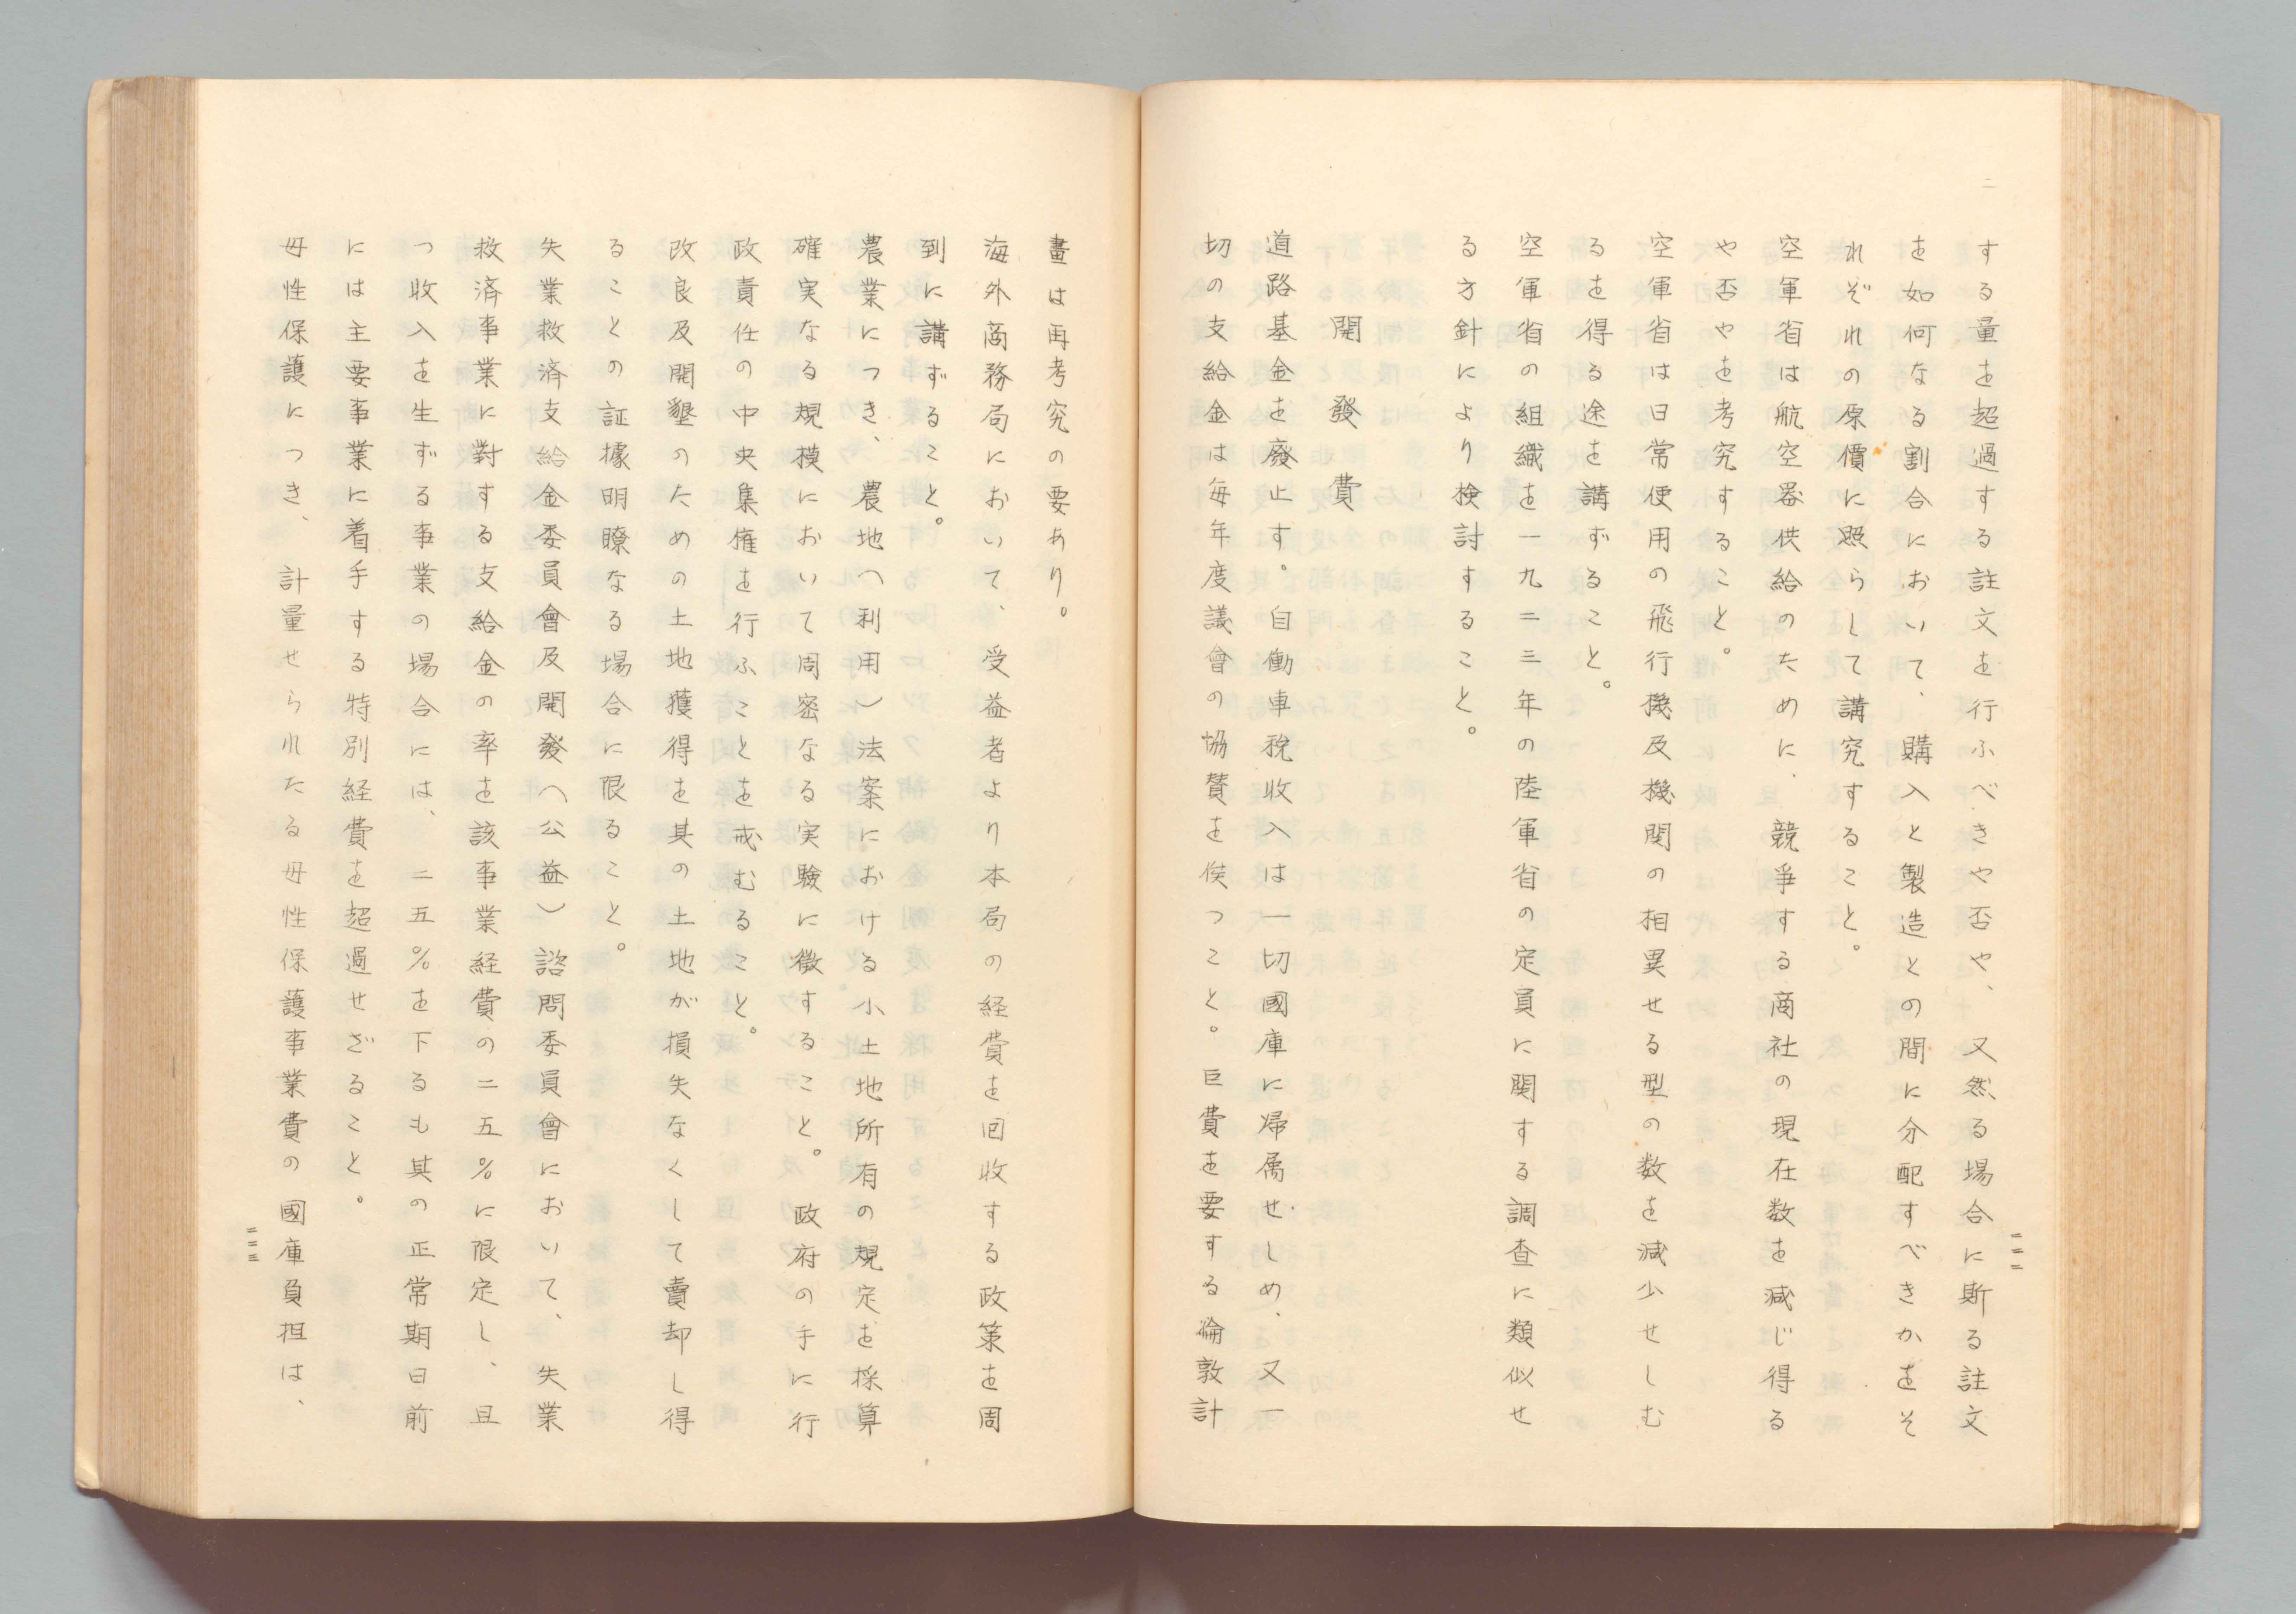 する量を超過する註文を行ふべきや否や、又然る場合に斯る註文
を如何なる割合において、購入と製造との間に分配すべきかをそ
れぞれの原價に照らして講究すること。
空軍省は航空器供給のために、競爭する商社の現在数を減じ得る
や否やを考究すること。
空軍省は日常使用の飛行機及機関の相異せる型の数を減少せしむ
るを得る途を講ずること。
空軍省の組織を一九二三年の陸軍省の定員に関する調査に類似せ
る方針により検討すること。
開發費
道路基金を廢止す。自働車税收入は一切國庫に帰属せしめ、又一
切の支給金は毎年度議會の協賛を俟つこと。巨費を要する倫敦計
二二二
畫は再考究の要あり。
海外商務局において、受益者より本局の経費を回收する政策を周
到に講ずること。
農業につき、農地（利用）法案における小土地所有の規定を採算
確実なる規模において周密なる実験に徴すること。政府の手に行
政責任の中央集権を行ふことを戒むること。
改良及開墾のための土地獲得を其の土地が損失なくして賣却し得
ることの証據明瞭なる場合に限ること。
失業救済支給金委員會及開發（公益）諮問委員會において、失業
救済事業に對する支給金の率を該事業経費の二五％に限定し、且
つ收入を生ずる事業の場合には、二五％を下るも其の正常期日前
には主要事業に着手する特別経費を超過せざること。
母性保護につき、計量せられたる母性保護事業費の國庫負担は、
二二三